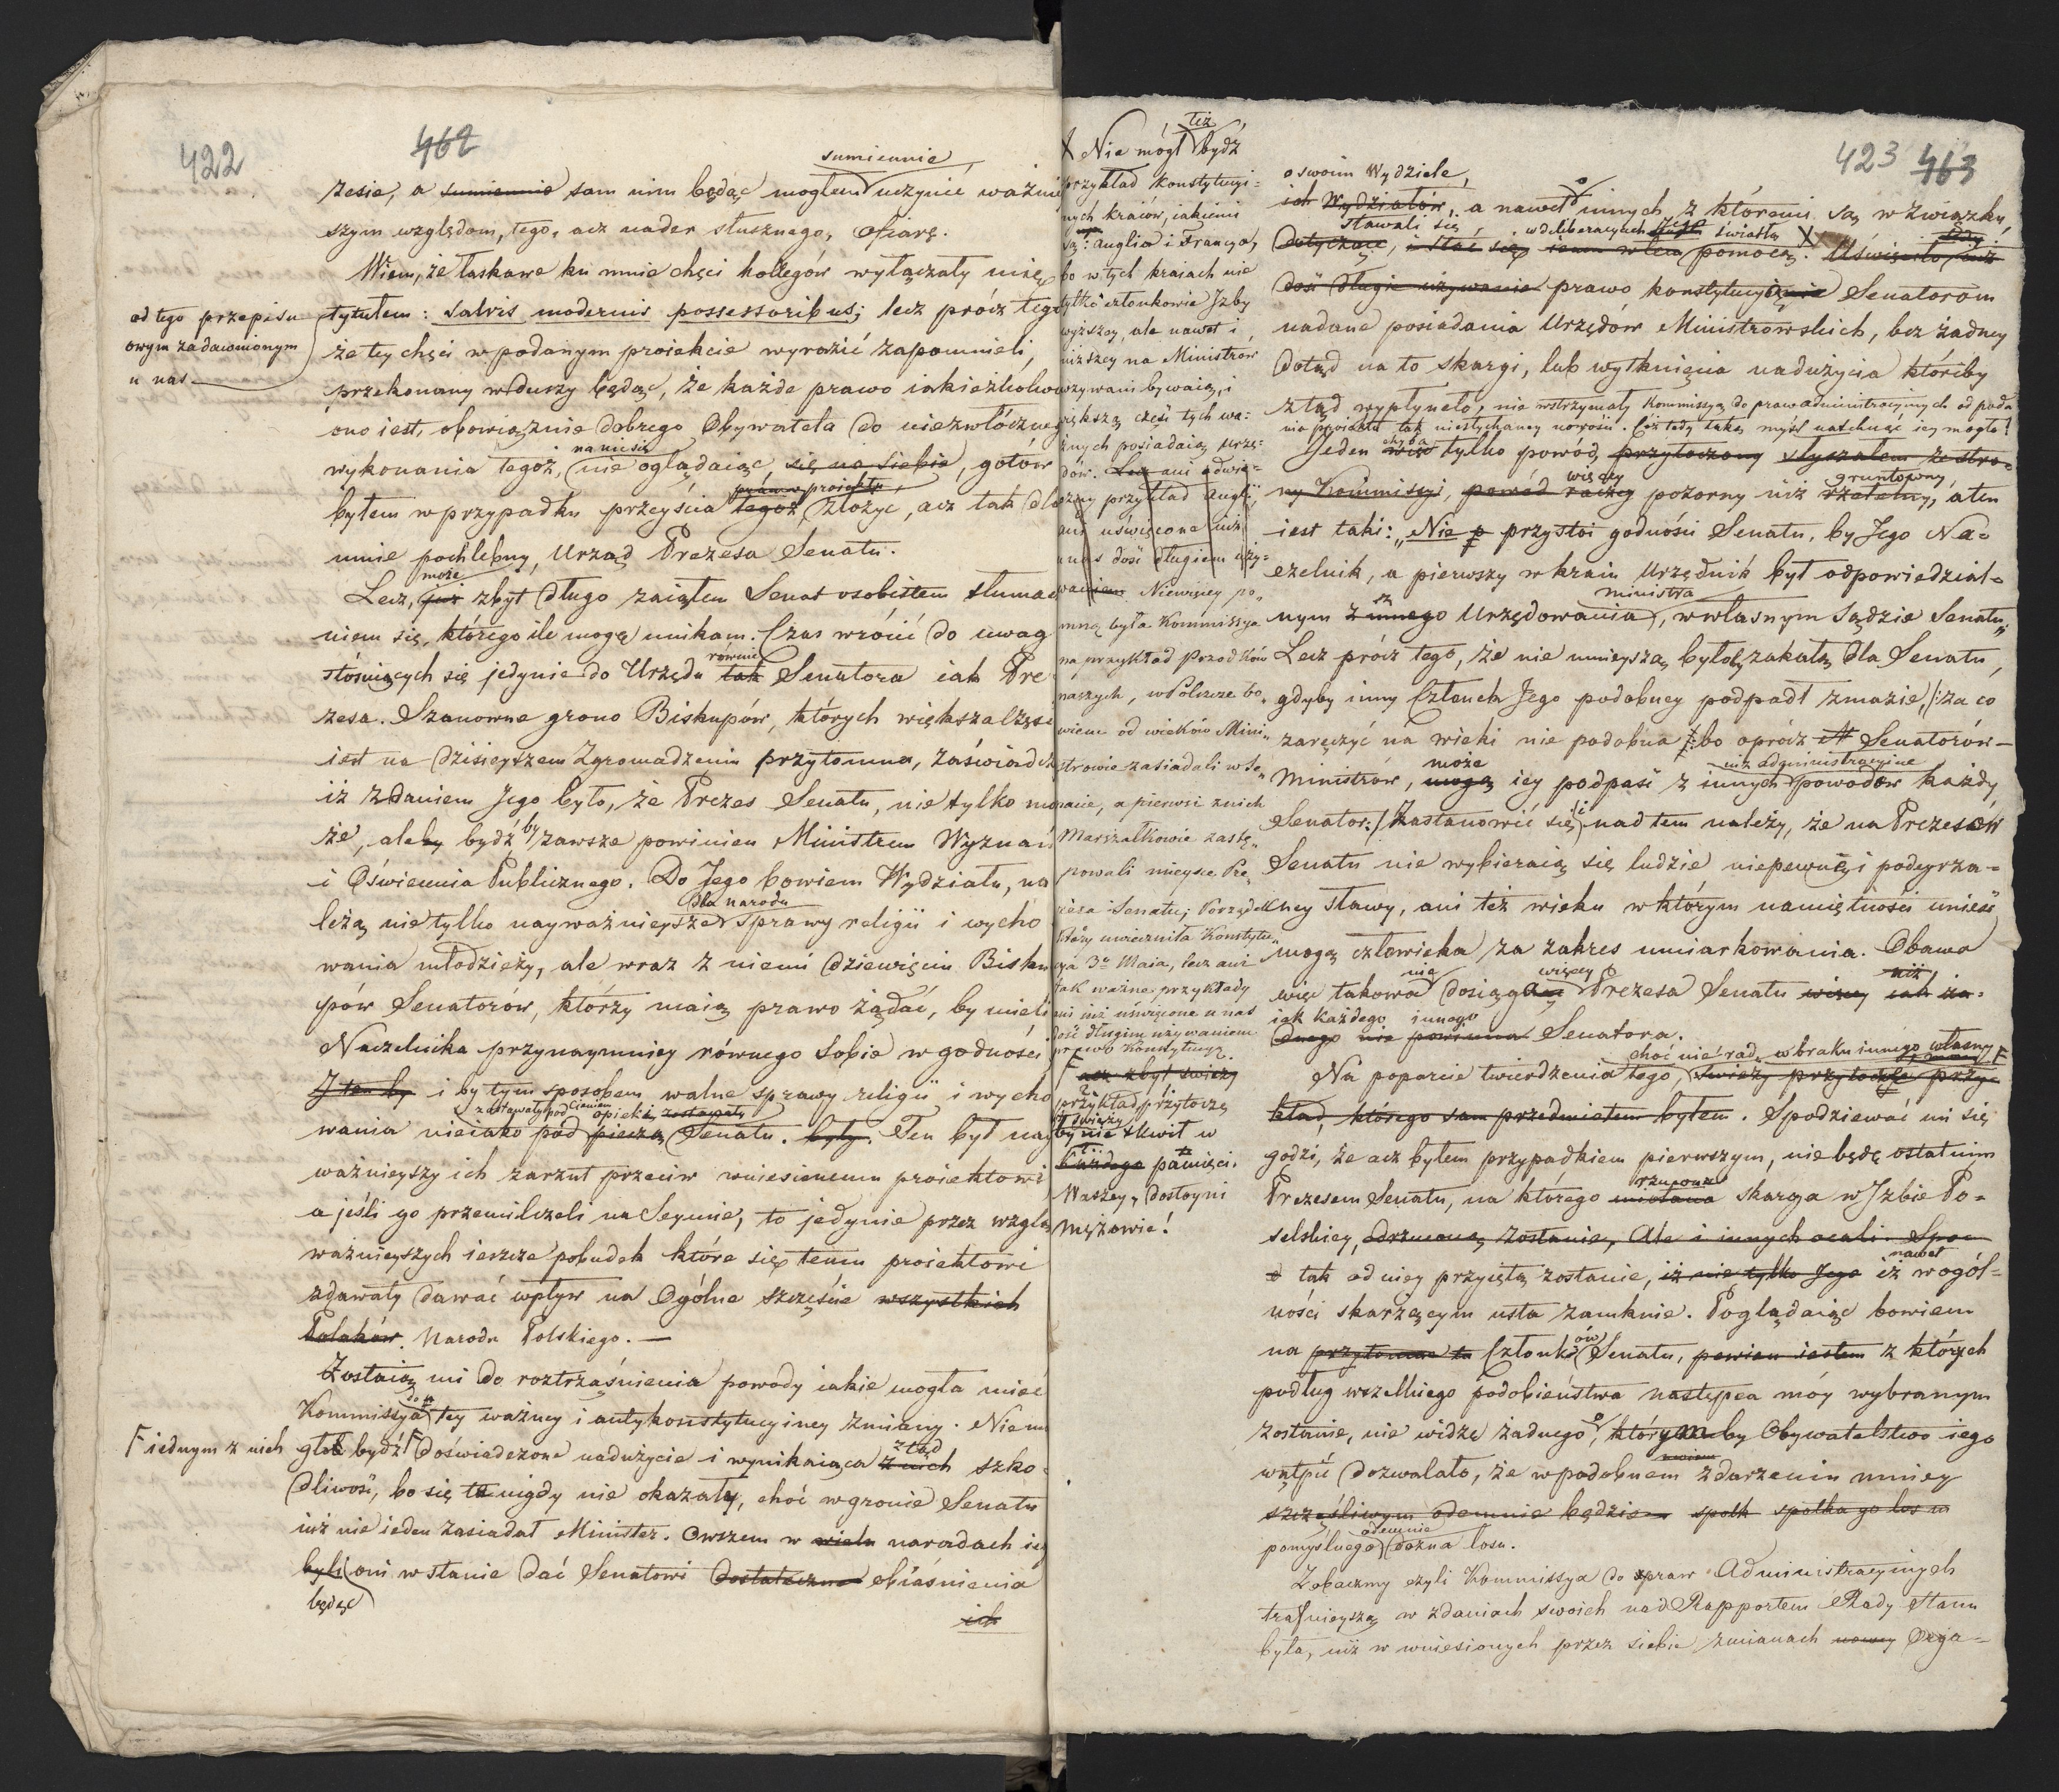 422
462
sumiennie
zesie, a sumiennie sam nim będąc mogłem uczynić ważniey
szym względom, tego, acz nader słusznego, ofiarę.
Wiem, że łaskawe ku mnie chęci kollegów wyłączały mię
od tego przepisu
owym zadawnionym
u nas
tytułem: salvis modernis possessoribus; lecz prócz tego
że tey chęci w podanym proiekcie wyrazić zapomnieli,
przekonany w duszy będąc, że każde prawo iakieżkolwiek
ono iest, obowiązuie dobrego Obywatela do niezwłóczney
na nic się
wykonania tegoż, nie oglądaiąc, się na siebie, gotów
byłem w przypadku przeyścia tegoż, złożyć, acz tak dla
mnie pochlebny, Urząd Prezesa Senatu.
może
Lecz, już zbyt długo zaiąłem Senat osobistem tłuma
niem się, którego ile mogę unikam. Czas wrócić do uwag
równie
stósuiących się jedynie do Urzędu tak Senatora iak Pre
zesa. Szanowne grono Biskupów, których większa część
iest na dzisieyszem Zgromadzeniu przytomna, zaświadcz
iż zdaniem Jego było, że Prezes Senatu, nie tylko mo
że, aleby bydź by zawsze powinien Ministrem Wyznań
i Oświecenia Publicznego. Do Jego bowiem Wydziału, na
dla narodu
leżą nie tylko nayważnieysze sprawy religii i wycho
wania młodzieży, ale wraz z niemi dziewięciu Bisku
pów Senatorów, którzy maią prawo żądać, by mieli
Naczelnika przynaymniey równego sobie w godności
J ten by i by tym sposobem walne sprawy religii i wycho
zostawały pod cieniem opieki zostawały
wania nieiako pod pieczą Senatu. były. Ten był nay
ważnieyszy ich zarzut przeciw wniesionemu proiektowi
a jeśli go przemilczeli na Seymie, to jedynie przez wzglą
ważnieyszych ieszcze pobudek które się temu proiektowi
zdawały dawać wpływ na Ogólne szczęście wszystkich
Polaków. Narodu Polskiego.—
Zostaią mi do roztrząśnienia powody iakie mogła mieć
do
Kommissya tey ważney i antykonstytucyiney zmiany. Nie mo
F iednym z nich
gło bydź F doświadczone nadużycie i wynikaiąca z nich szko
ztąd
dliwość, bo się tu nigdy nie okazały, choć w gronie Senatu
iuż nie ieden zasiadał Minister. Owszem w wielu naradach iey
byli oni w stanie dać Senatowi dostateczne obiaśnienia
będąc
ich
też
X Nie mógł bydź
przykład konstytucyi=
nych kraiów, iakiemi
są: Anglia i Francya,
bo w tych kraiach nie
tylko członkowie Jzby
wyższey, ale nawet i
niższey na Ministrów
wzywani bywaią, i
większą część tych wa=
żnych posiadaią urzę=
dów. Lecz ani odwie=
czny przykład Anglii,
ani uświęcone iuż
u nas dość długiem uży=
waniem Niewięcey po„
mną była Kommissya
na przykład Przodków
naszych, w Polszcze bo„
wiem od wieków Mini„
strowie zasiadali w Se„
nacie, a pierwsi z nich
Marszałkowie zastę„
powali mieysce Pre„
zesa Senatu; Porządek
który uwieczniła Konstytu„
cya 3o Maia, lecz ani
tak ważne przykłady
ani iuż uświęcone u nas
dość długim używaniem
prawo Konstytucyą.
F acz zbyt świeży
przykład przytoczę
by nie tkwił w
każdego pamięci.
Waszey, Dostoyni
Mężowie!
423 463
o swoim Wydziele,
ich Wydziałów, a nawet o innych, z któremi są w związku,
stawali się w deliberacyach Jego światłą
dotyczące, i stać się iemu w tem pomocą. X Uświęciło, iuż
dość długie używanie prawo konstytucyine Senatorom
nadane posiadania Urzędów Ministrowskich, bez żadney
dotąd na to skargi, lub wytknięcia nadużycia któreby
ztąd wypłynęło, nie wstrzymały Kommissyą do praw administracyinych od poda
nia proiektu tak niesłychaney nowości. Cóż tedy taką myśl natchnąć iey mogło?
chyba
Jeden więc tylko powód, przytoczony słyszałem ze stro=
więcey gruntówny
ny Kommissyi, powód raczey pozorny niż rzetelny, a ten
iest taki: „Nie p przystoi godności Senatu, by Jego Na=
czelnik, a pierwszy w kraiu Urzędnik był odpowiedzial=
ministra
nym z innego Urzędowania, w własnym Sądzie Senatu„
Lecz prócz tego, że nie mnieyszą byłoby zakałą dla Senatu,
gdyby inny Członek Jego podobney podpadł zmazie, /:za co
zaręczyć na wieki nie podobna /:bo oprócz Senatorów—
może niż administracyine
Ministrów, mogą iey podpaść z innych powodów każdy
Senator:/ Zastanowić się i nad tem należy, że na Prezesów
Senatu nie wybieraią się ludzie niepewney i podeyrza=
ney sławy, ani też wieku w którym namiętności unieść
mogą człowieka za zakres umiarkowania. Obawa
nie więcey niż
więc takowa dosięga Prezesa Senatu więcey iak ża=
iak każdego innego
dnego nie powinna Senatora.
choć nie rad, w braku innego własny F
Na poparcie twierdzenia tego, świeży przytoczę przy=
kład, którego sam przedmiotem byłem. Spodziewać mi się
godzi, że acz byłem przypadkiem pierwszym, nie będę ostatnim
rzucona
Prezesem Senatu, na którego miotana skarga w Jzbie Po=
selskiey, odrzuconą zostanie, Ale i innych ocali. Spo=
nawet
tak od niey przyiętą zostanie, iż nie tylko Jego iż wogól=
ności skarżącym usta zamknie. Poglądaiąc bowiem
na przytomne tu Członków Senatu, pewien iestem z których
podług wszelkiego podobieństwa następca móy wybranym
zostanie, nie widzę żadnego, o którymby Obywatelstwo iego
wątpić dozwalało, że w podobnem zdarzeniu mniey
szczęśliwym odemnie będzie spotk spotka go los w
odemnie
pomyślnego dozna losu.
Zobaczmy czyli Kommissya do spraw Administracyinych
trafnieyszą w zdaniach swoich nad Rapportem Rady Stanu
była, niż w wniesionych przez siebie zmianach nowey Orga=